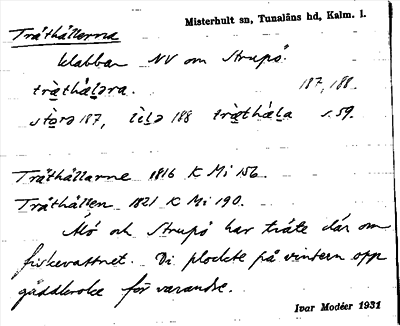 Misterhult sn, Tunaläns hd, Kalm. l.
Tråthållarna
klabbar NV om Strupö.
tràthálara. 187, 188.
stòra 187, lìla 188 tràthála s. 59.
Tråthållarne 1816 K Mi 156.
Tråthållen 1821 K Mi 190.
Mö och Strupö har tråte där om
fiskevattnet. Di plockte på vintern opp
gäddkroke för varandre.
Ivar Modéer 1931